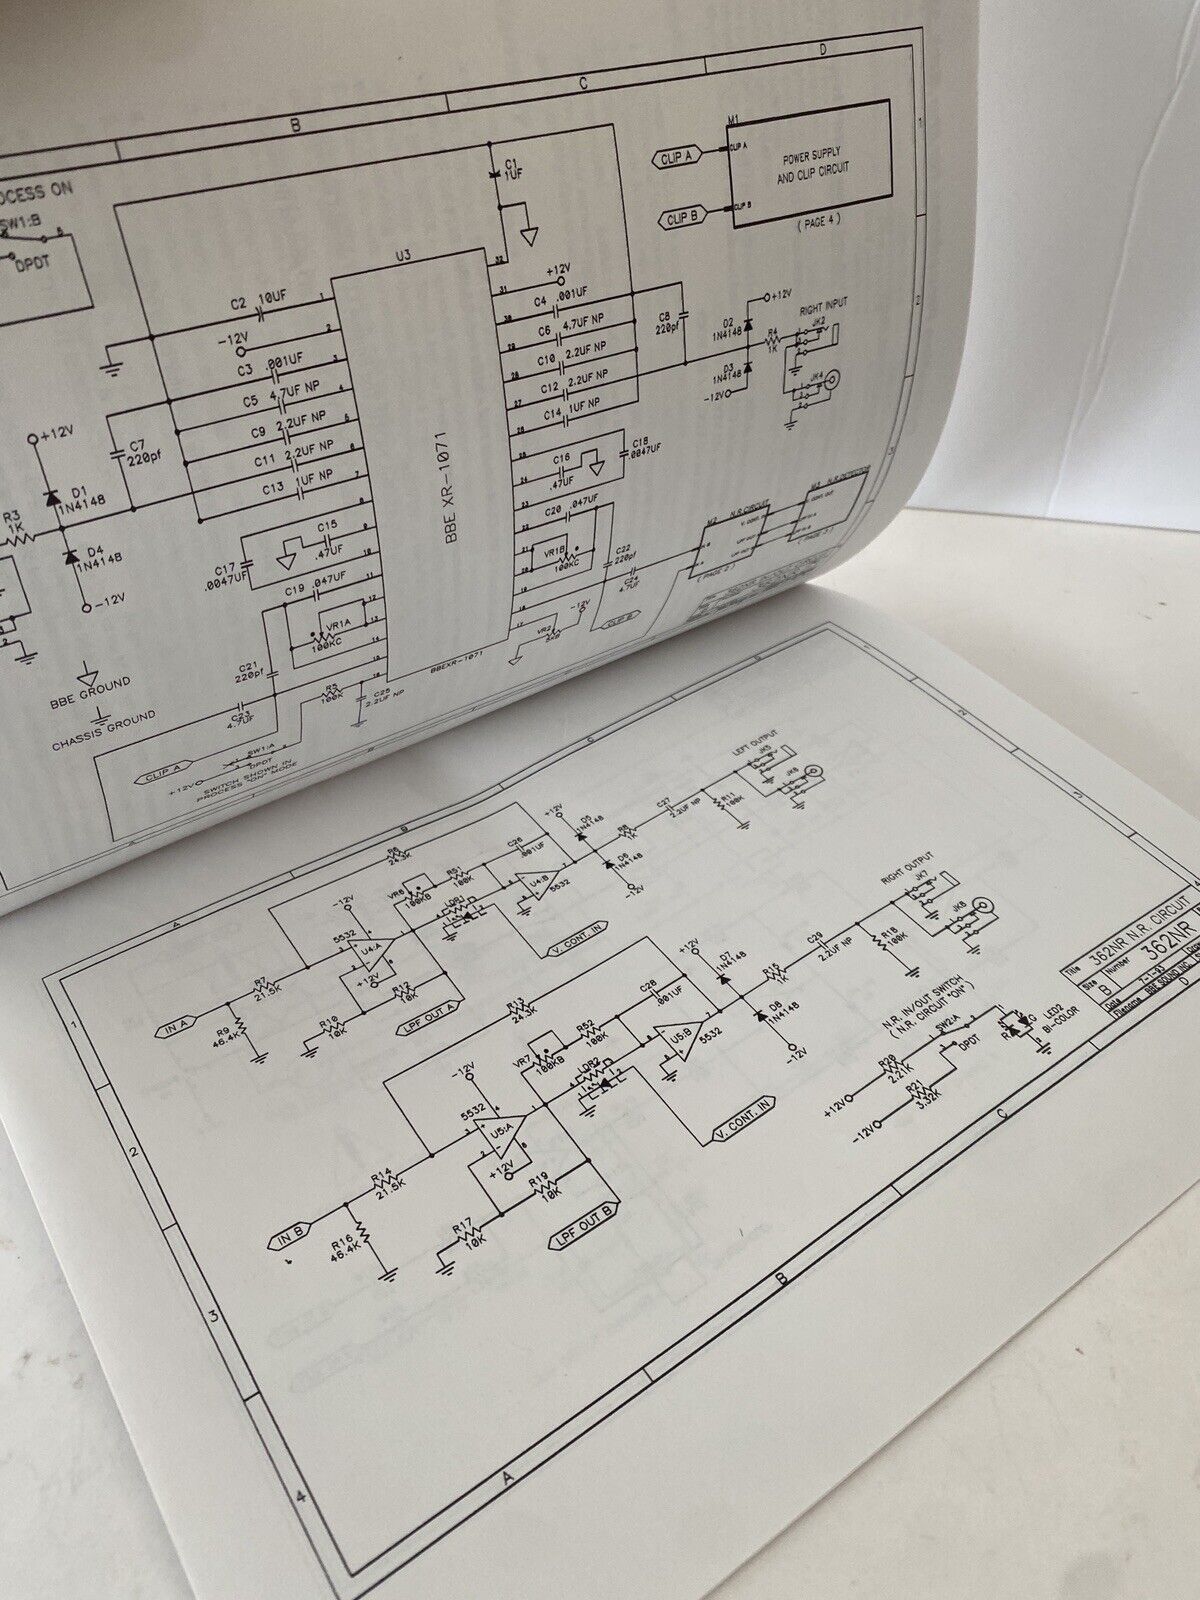 B
C
D
1
PROCESS ON
SW1:B
DPDT
C1
1UF
M1
CLIP A
CLIP A
POWER SUPPLY
AND CLIP CIRCUIT
CLIP B
CLIP B
( PAGE 4 )
U3
32
31
+12V
C2 10UF
1
-12V
2
C3 .001UF
3
C5 4.7UF NP
4
C9 2.2UF NP
5
C11 2.2UF NP
6
C13 1UF NP
7
C4 .001UF
30
C6 4.7UF NP
29
C10 2.2UF NP
28
C12 2.2UF NP
27
C14 1UF NP
26
C8
220pf
D2
1N4148
+12V
D3
1N4148
-12V
R4
1K
RIGHT INPUT
JK2
JK4
2
3
+12V
D1
1N4148
R3
1K
D4
1N4148
-12V
C7
220pf
BBE XR-1071
8
9
C15
.47UF
10
C17
.0047UF
C19 .047UF
11
12
VR1A
100KC
13
14
15
16
25
C16
.47UF
24
C18
.0047UF
23
C20 .047UF
22
21
VR1B
100KC
20
19
18
17
C22
220pf
C24
4.7UF
VR2
-12V
CLIP B
M2 N.R. CIRCUIT
( PAGE 2 )
N.R. DETECTOR
BBEXR-1071
C21
220pf
C23
4.7UF
R5
100K
C25
2.2UF NP
BBE GROUND
CHASSIS GROUND
CLIP A
SW1:A
+12V
DPDT
SWITCH SHOWN IN
PROCESS "ON" MODE
A
B
C
1
2
3
4
LEFT OUTPUT
JK5
JK6
C27
2.2UF NP
R11
100K
R8
1K
+12V
D5
1N4148
D6
1N4148
-12V
C26
.001UF
U4:B
5532
R6
24.3K
VR6
100KB
R51
100K
LDR1
V. CONT. IN
-12V
5532
U4:A
+12V
R7
21.5K
IN A
R9
46.4K
R10
10K
R12
10K
LPF OUT A
RIGHT OUTPUT
JK7
JK8
C29
2.2UF NP
R18
100K
R15
1K
+12V
D7
1N4148
D8
1N4148
-12V
C28
.001UF
U5:B
5532
R13
24.3K
VR7
100KB
R52
100K
LDR2
V. CONT. IN
-12V
5532
U5:A
+12V
R14
21.5K
IN B
R16
46.4K
R17
10K
R19
10K
LPF OUT B
N.R. IN/OUT SWITCH
( N.R. CIRCUIT "ON" )
SW2:A
DPDT
R20
2.21K
+12V
R21
3.32K
-12V
LED2
BI-COLOR
Title
362NR N.R. CIRCUIT
Size
B
Number
362NR
Date
Filename
BBE SOUND INC.
A
B
C
D